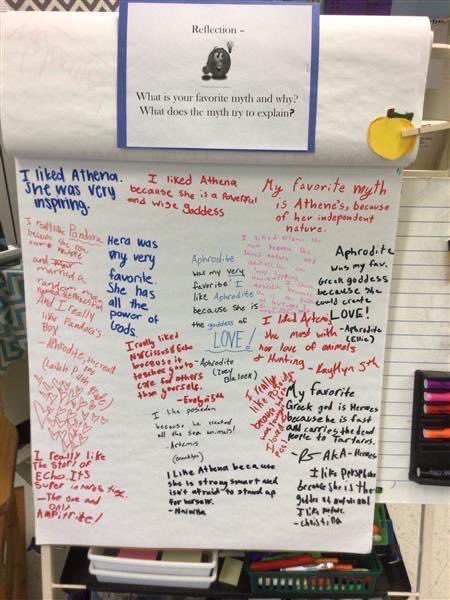 Reflection –
What is your favorite myth and why?
What does the myth try to explain?
I liked Athena.
She was very
inspiring.
I liked Athena
because she is a powerful
and wise goddess
My favorite myth
is Athene's, because
of her independent
nature.
I really like Pandora
married a
random
And I really
like Pandora's
Box
Hera was
my very
favorite.
She has
all the
power of
Gods
Aphrodite
was my very
favorite! I
like Aphrodite
because she is
the goddess of
LOVE!
- Aphrodite
Aphrodite
was my fav.
Greek goddess
because she
could create
LOVE!
- Aphrodite
(Ellie)
I like Artemis
the most with
her love of animals
& Hunting - Kayllyn 5th
I really liked
Narcissus & Echo
because it
teaches you to
care for others
than yourself.
- Evelyn 5th
I like poseidon
because he created
all the sea animals!
- Artemis
My favorite
Greek god is Hermes
because he is fast
and carries the dead
people to Tartarus.
AKA - Hermes
I really like
The story of
Echo. It's
super interesting.
- The one and
only
Amphitrite!
I Like Athena because
she is strong smart and
isn't afraid to stand up
for herself.
I like
because she is the
I like nature.
- christina